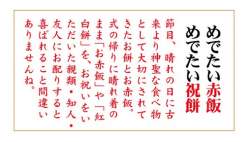 めでたい赤飯
めでたい祝餅
節目、晴れの日に古
来より神聖な食べ物
として大切にされて
きたお餅とお赤飯。
式の帰りに晴れ着の
まま「お赤飯」や「紅
白餅」を、お祝いをい
ただいた親類・知人・
友人にお配りすると
喜ばれること間違い
ありませんね。